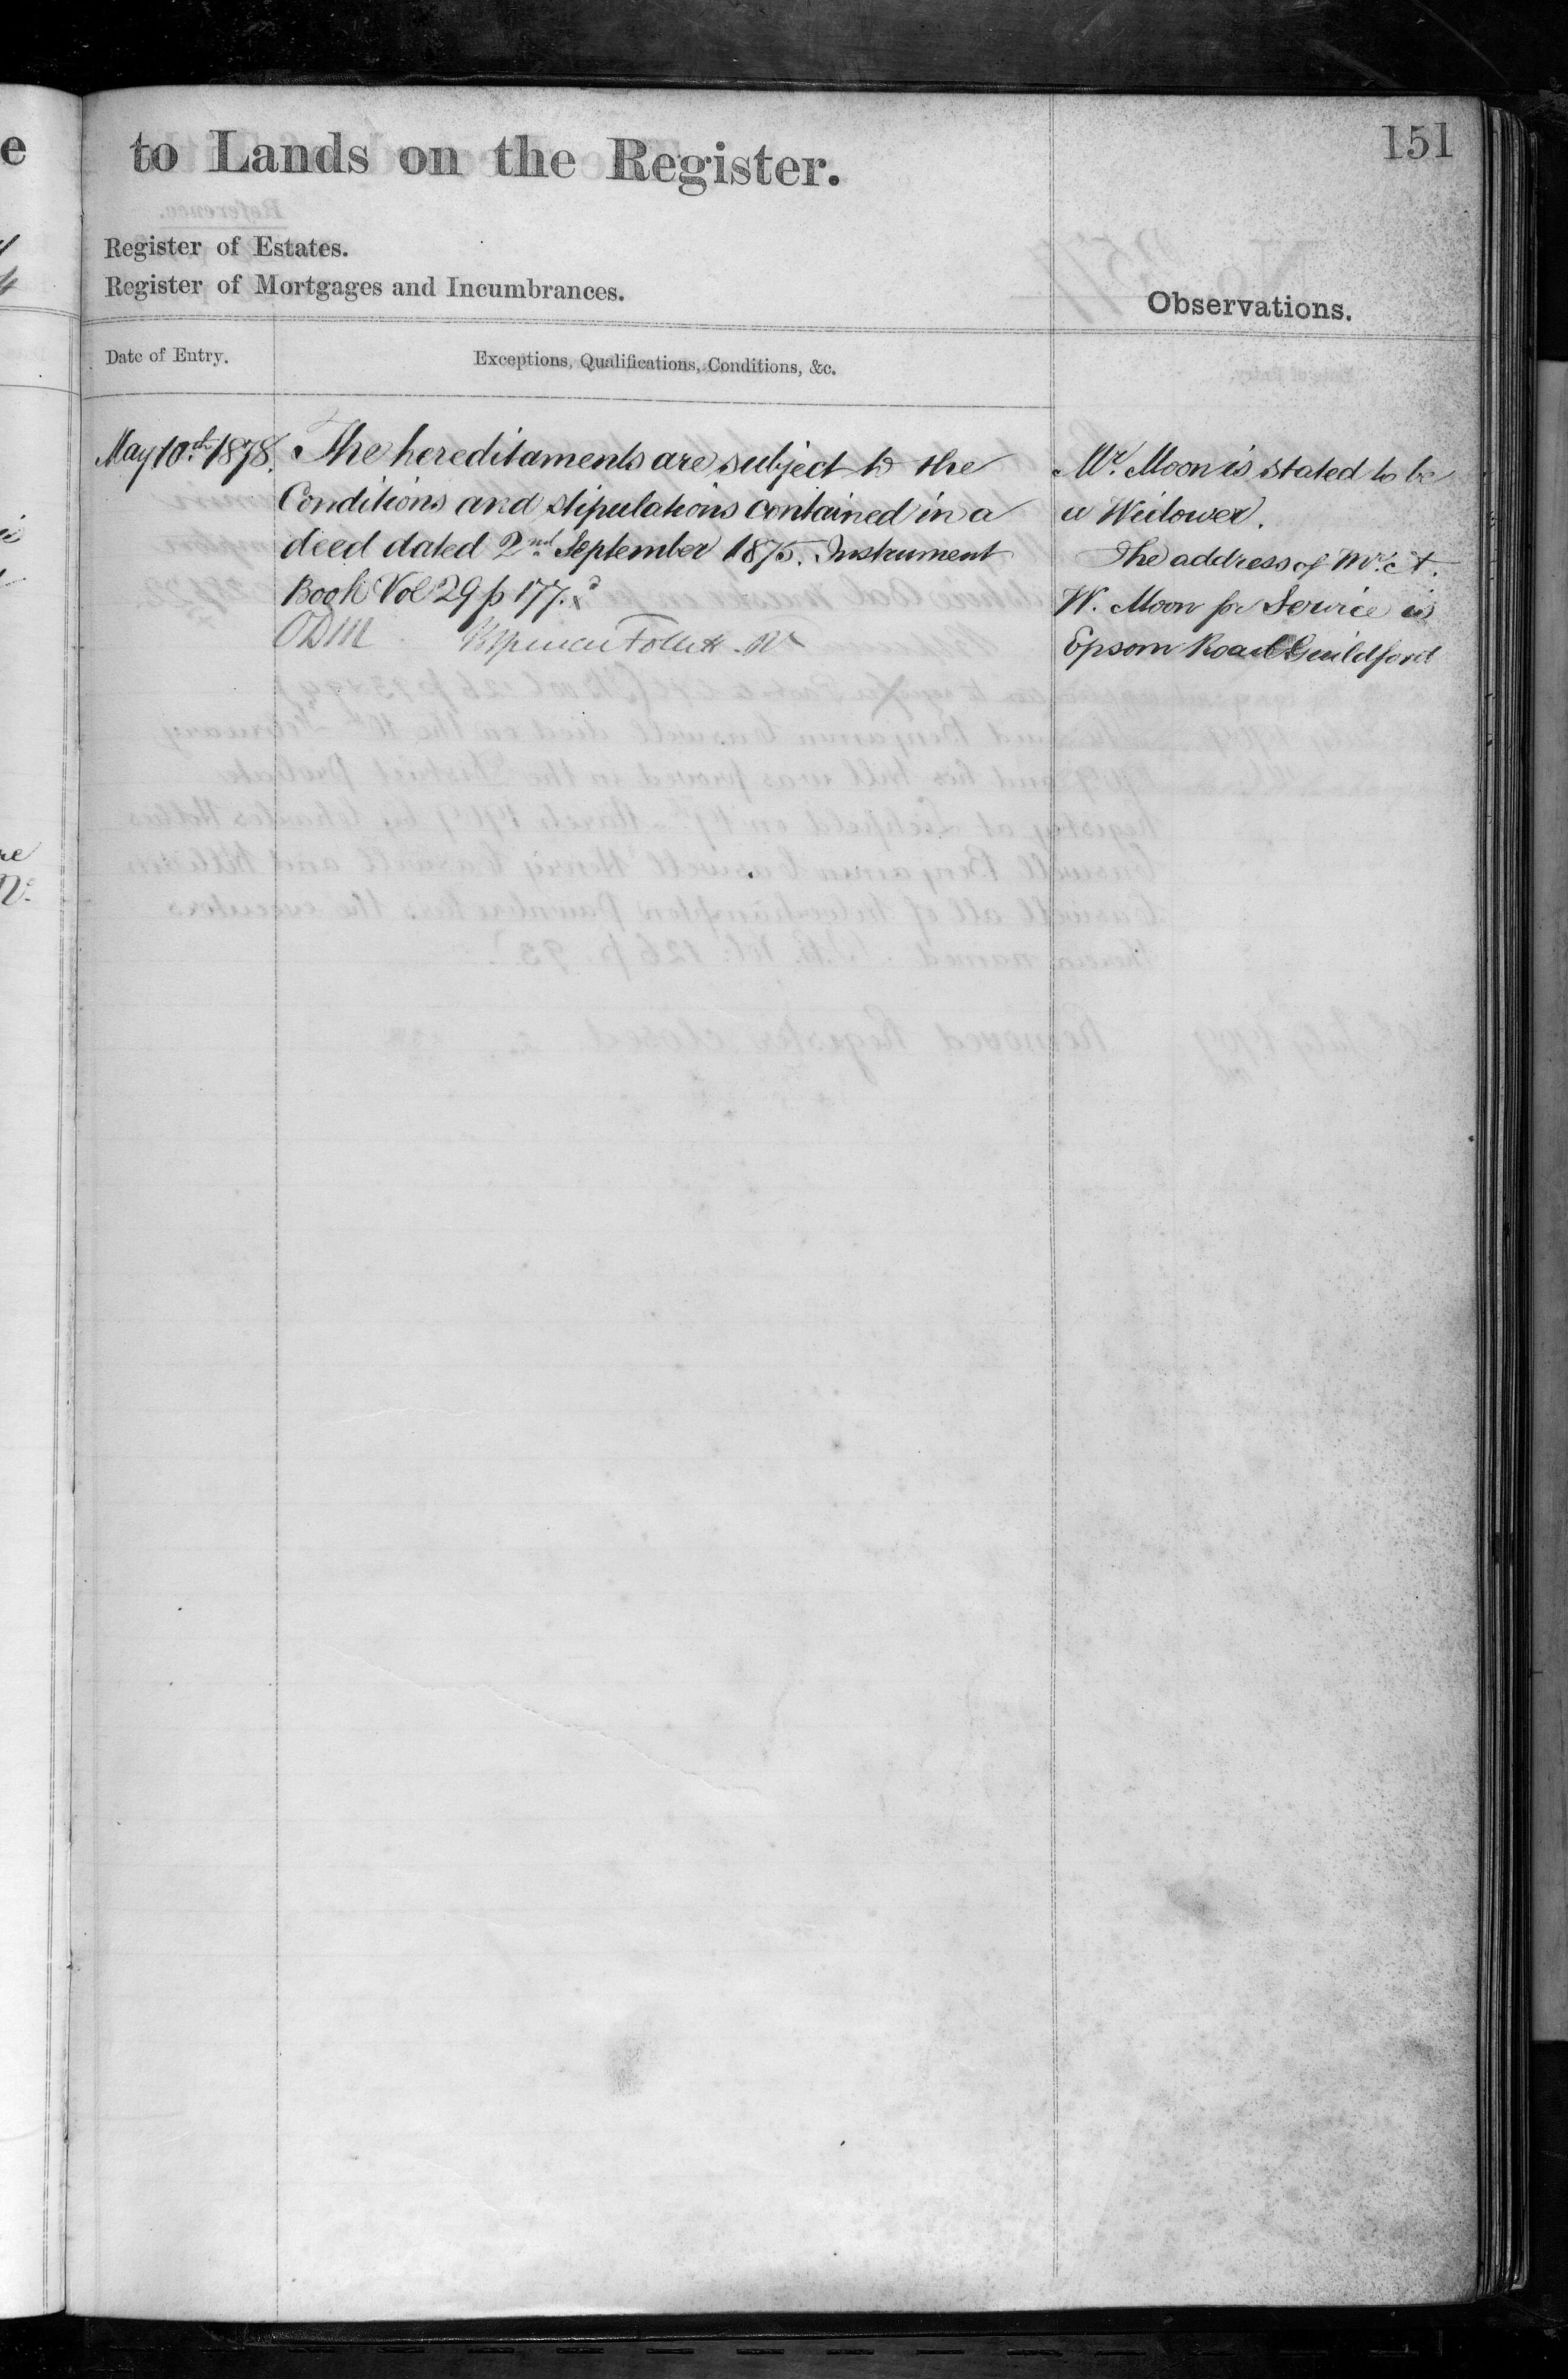 151
to Lands on the Register.
Register of Estates.
Register of Mortgages and Incumbrances.
Observations.
Date of Entry.
Exceptions, Qualifications, Conditions, &c.
May 10th 1878.
The hereditaments are subject to the
Conditions and stipulations contained in a
deed dated 2nd September 1875. Instrument
Book Vol 29 p 177.
ODM
Follett
Mr. Moon is stated to be
a Widower.
The address of Mr. A.
W. Moon for Service is
Epsom Road Guildford